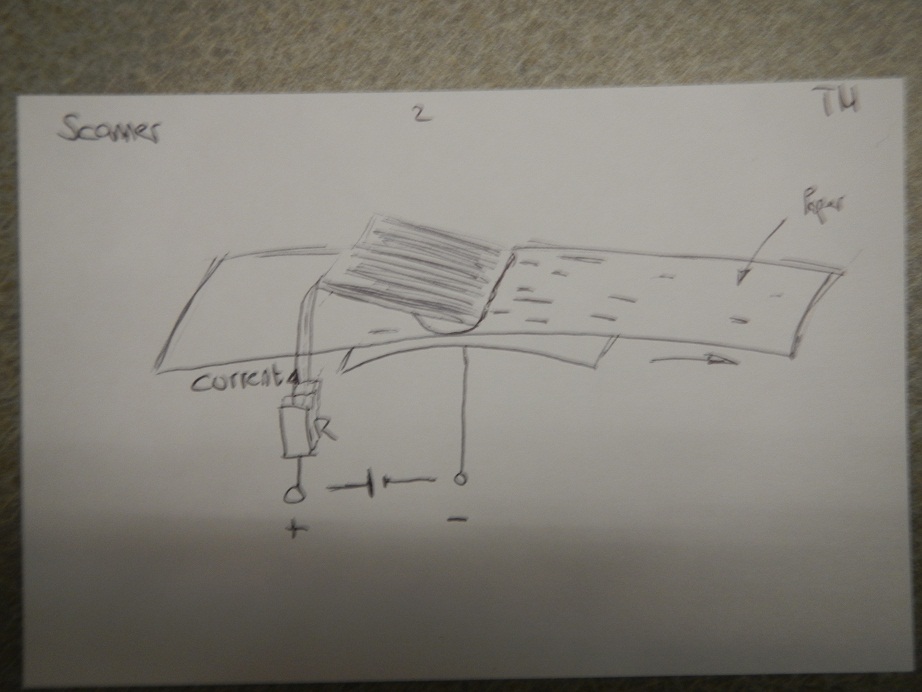 Scanner
2
TM
Paper
current
R
+
-